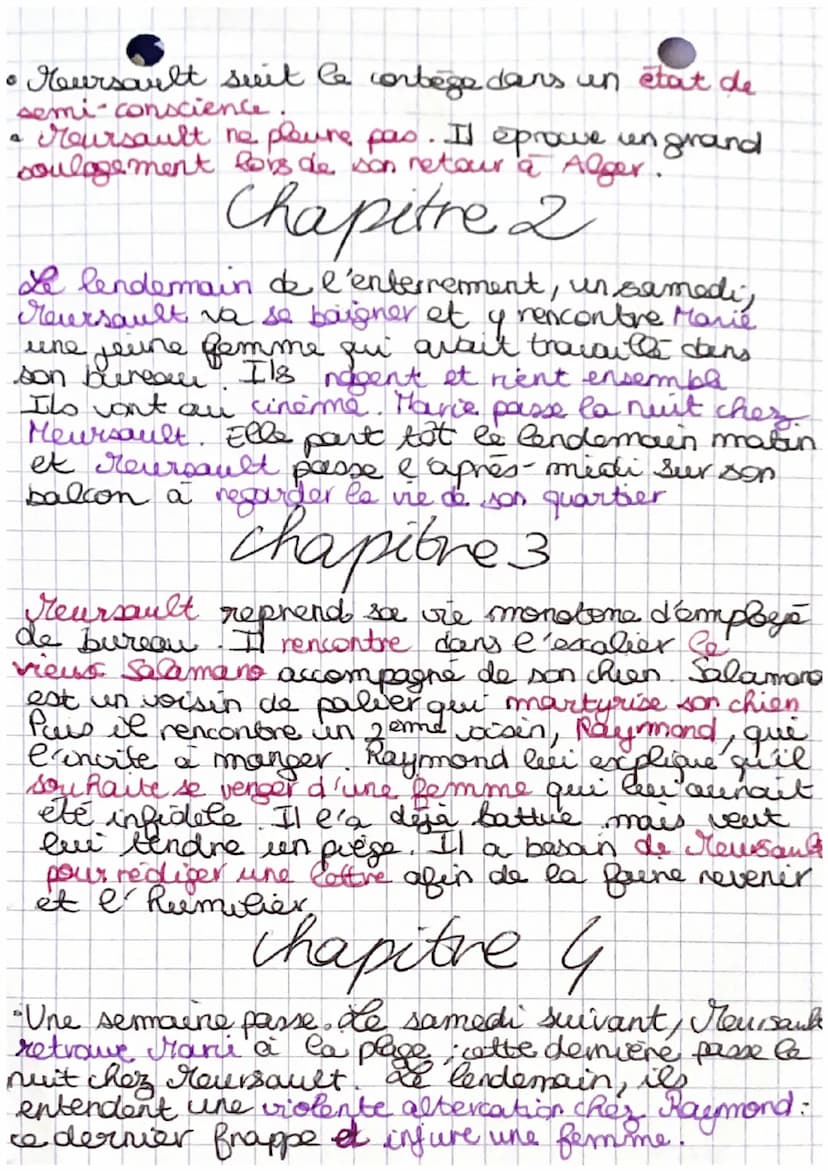 • Meursault suit le cortège dans un état de
semi-conscience.
• Meursault ne pleure pas. Il éprouve un grand
soulagement lors de son retour à Alger.
Chapitre 2
Le lendemain de l'enterrement, un samedi,
Meursault va se baigner et y rencontre Marie
une jeune femme qui avait travaillé dans
son bureau. Ils nagent et rient ensemble
Ils vont au cinéma. Marie passe la nuit chez
Meursault. Elle part tôt le lendemain matin
et Meursault passe l'après-midi sur son
balcon à regarder la vie de son quartier
Chapitre 3
Meursault reprend sa vie monotone d'employé
de bureau. Il rencontre dans l'escalier le
vieux Salamano accompagné de son chien. Salamano
est un voisin de palier qui martyrise son chien
Puis il rencontre un 2eme voisin, Raymond, qui
l'invite à manger. Raymond lui explique qu'il
souhaite se venger d'une femme qui lui aurait
été infidèle. Il l'a déjà battue mais veut
lui tendre un piège. Il a besoin de Meursault
pour rédiger une lettre afin de la faire revenir
et l'humilier
Chapitre 4
•Une semaine passe. Le samedi suivant, Meursault
retrouve Marie à la plage ; cette dernière passe la
nuit chez Meursault. Le lendemain, ils
entendent une violente altercation chez Raymond :
ce dernier frappe et injure une femme.